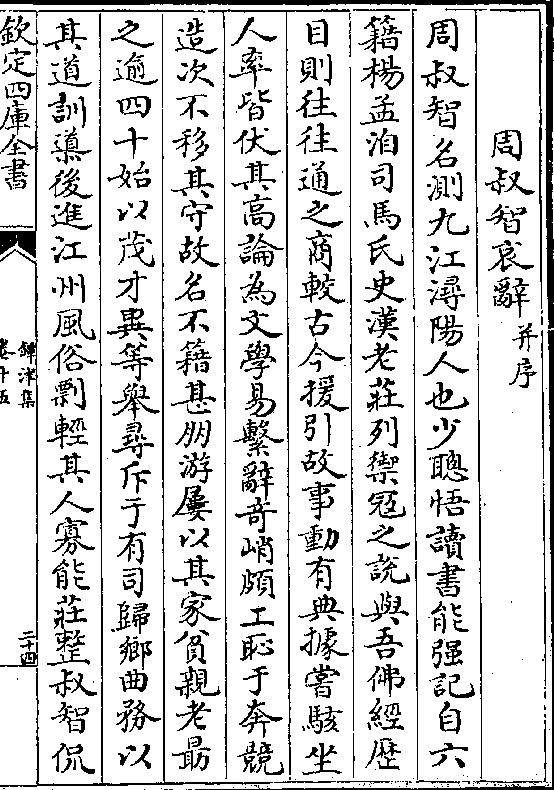 周叔智哀辭并序
周叔智名測九江潯陽人也少聰悟讀書能强記自六
籍楊孟洎司馬氏史漢老莊列禦冦之説與吾佛經歴
目則往往通之商較古今援引故事動有典據嘗駭坐
人率皆伏其高論為文學易繫辭奇峭頗工恥于奔競
造次不移其守故名不籍甚朋游屢以其家貧親老最
之逾四十始以茂才異等舉尋斥于有司歸鄉曲務以
其道訓導後進江州風俗剽輕其人寡能莊整叔智侃
欽定四庫全書
鐔津集
卷十五
二十四